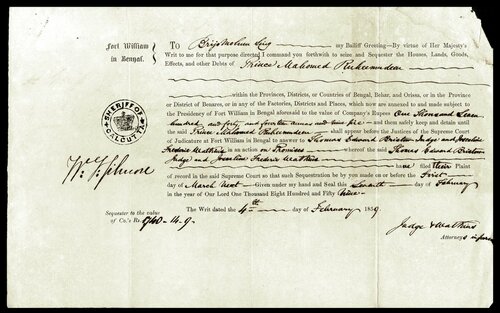 Fort William
in Bengal.
To Brijo Mohun my Bailiff Greeting—By virtue of Her Majesty's
Writ to me for that purpose directed I command you forthwith to seize and Sequester the Houses, Lands, Goods,
Effects, and other Debts of Prince Mahomed Ruheemudeen
within the Provinces, Districts, or Countries of Bengal, Behar, and Orissa, or in the Province
or District of Benares, or in any of the Factories, Districts and Places, which now are annexed to and made subject to the
Presidency of Fort William in Bengal aforesaid to the value of Company's Rupees One Thousand Seven
hundred and forty and fourteen annas and nine pie—and them safely keep and detain until
the said Prince Mahomed Ruheemudeen shall appear before the Justices of the Supreme Court
of Judicature at Fort William in Bengal to answer to Thomas Edward Bristow Judge and Josselin
Frederic Mathine in an action on Promises whereof the said Thomas Edward Bristow
Judge and Josselin Frederic Mathine have filed their Plaint
of record in the said Supreme Court so that such Sequestration be by you made on or before the First
day of March Next—Given under my hand and Seal this Seventh day of February
in the year of Our Lord One Thousand Eight Hundred and Fifty Nine
The Writ dated the 4th day of February 1859
SHERIFF OF
CALCUTTA
Sequester to the value
of Co.'s Rs. 1740-14-9
Judge & Mathine
Attorneys in person